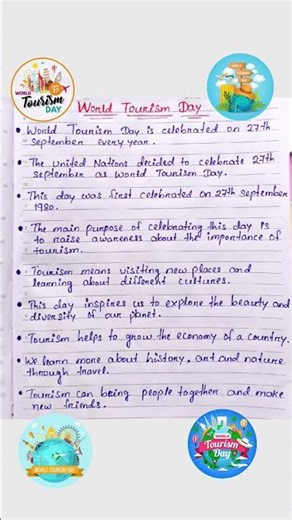 WORLD
27
Tourism
DAY
World Tourism Day
World Tourism Day is celebrated on 27th
September every year.
The United Nations decided to celebrate 27th
September as World Tourism Day.
This day was first celebrated on 27th September
1980.
The main purpose of celebrating this day is
to raise awareness about the importance of
tourism.
Tourism means visiting new places and
learning about different cultures.
This day inspires us to explore the beauty and
diversity of our planet.
Tourism helps to grow the economy of a country.
We learn more about history, art and nature
through travel.
Tourism can bring people together and make
new friends.
WORLD TOURISM DAY
WORLD
Tourism
Day